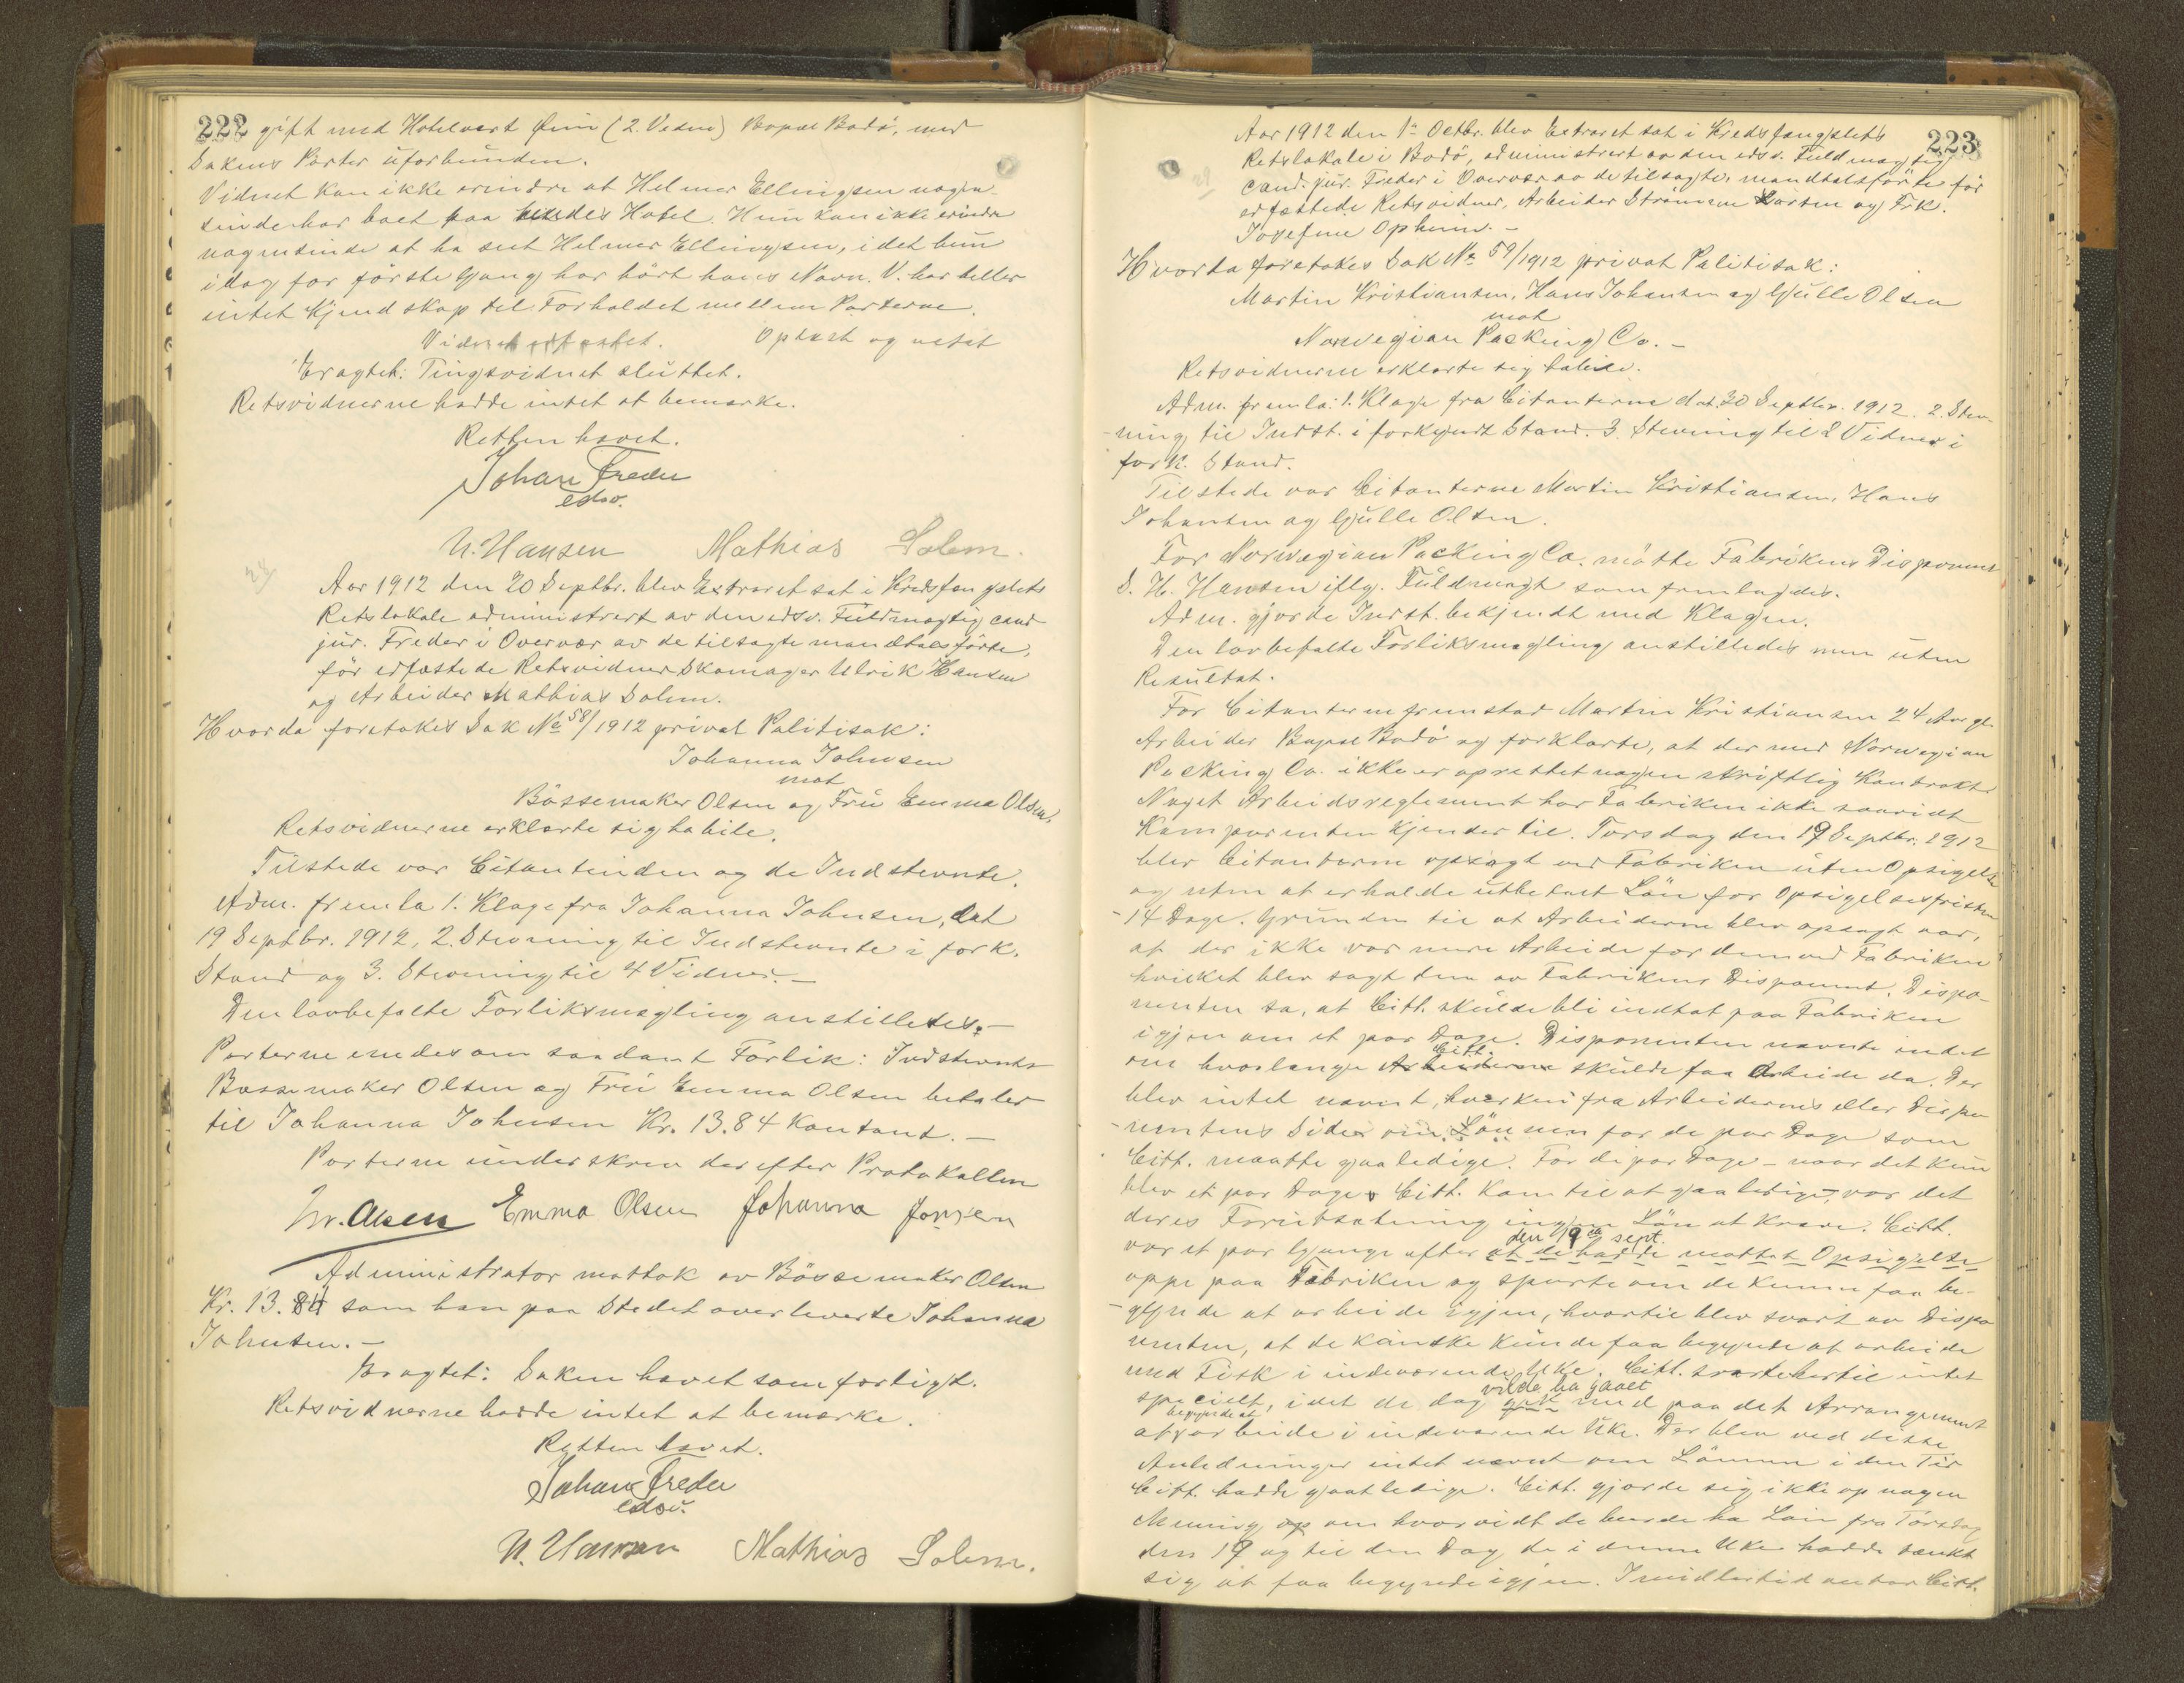 222 gift med Hotelvert Øiin (2. Vidne) Bopæl Bodö, med
Sakens Parter uforbunden.
Vidnet kan ikke erindre at Helmer Ellingsen nogen-
sinde har boet paa hendes Hotel. Hun kan ikke erindre
nogensinde at ha seet Helmer Ellingsen, idet hun
idag for förste Gang har hört hans Navn. V. har heller
intet Kjendskap til Forholdet mellem Parterne.
Vidnet Oplæst og vedat
Eragtet: Tingsvidnet sluttet.
Retsvidnerne hadde intet at bemærke.
Retten hævet.
Johan Freder
edsv.
U. Hansen Mathias Solem.
Aar 1912 den 20 Septbr. blev Extraret sat i Kredsfængslets
Retslokale administrert av den edsv. Fuldmægtig cand
jur. Freder i Overvær av de tilsagte mandtalsförte,
för edfæstede Retsvidner Skomager Ulrik Hansen
og Arbeider Mathias Solem.
Hvorda foretakes Sak No 58/1912 privat Politisak:
Johanna Johnsen
mot
Bössemaker Olsen og Fru Emma Olsen.
Retsvidnerne erklærte sig habile.
Tilstede var Citantinden og de Indstevnte.
Adm. fremla 1. Klage fra Johanna Johnsen, dat
19 Septbr. 1912, 2. Stevning til Indstevnte i fork.
Stand og 3. Stevning til 4 Vidner. -
Den lovbefalte Forliksmegling anstilledes. -
Parterne enedes om saadant Forlik: Indstevnte
Bøssemaker Olsen og Fru Emma Olsen betaler
til Johanna Johnsen Kr. 13.84 Kontant. -
Parterne underskrev derefter Protokollen
Emma Olsen Johanna Jonsen
Administrator mottok av Bössemaker Olsen
Kr. 13.84 som han paa Stedet overleverte Johanna
Johnsen. -
Eragtet: Saken hævet som forligt.
Retsvidnerne hadde intet at bemærke.
Retten hævet.
Johan Freder
edsv.
U. Hansen Mathias Solem.
223
Aar 1912 den 1ste Octbr. blev Extraret sat i Kredsfængslets
Retslokale i Bodö, administrert av den edsv. Fuldmægtig
cand. jur. Freder i Overvær av de tilsagte, mandtalsförte för
edfæstede Retsvidner, Arbeider Strömme Larsen og Frk.
Josefine Opheim. -
Hvorda foretakes Sak No 59/1912 privat Politisak:
Martin Kristiansen, Hans Johansen og Gjulle Olsen
mot
Norwegian Packing Co. -
Retsvidnerne erklærte sig habile.
Adm. fremla: 1. Klage fra Citanterne dat. 30 Septber. 1912. 2. Stev-
-ning til Indst. i forkyndt Stand. 3. Stevning til 2 Vidner i
fork. Stand.
Tilstede var Citanterne Martin Kristiansen, Hans
Johansen og Gjulle Olsen.
For Norwegian Packing Co. mötte Fabrikens Disponent
S. H. Hansen iflg. Fuldmagt som fremlagdes.
Adm. gjorde Indst. bekjendt med Klagen.
Den lovbefalte Forliksmegling anstilledes men uten
Resultat.
For Citanterne fremstod Martin Kristiansen 24 Aar gl.
Arbeider Bopæl Bodö og forklarte, at der med Norwegian
Packing Co. ikke er oprettet nogen skriftlig Kontrakt
Noget Arbeidsreglement har Fabriken ikke saavidt
Komparenten kjender til. Torsdag den 19 Septbr. 1912
blev Citanterne opsagt ved Fabriken uten Opsigelse
og uten at erholde utbetalt Lön for Opsigelsesfristen
-14 Dage. Grunden til at Arbeiderne blev opsagt var,
at der ikke var mere Arbeide for dem ved Fabriken
hvilket blev sagt dem av Fabrikens Disponent. Dispo-
nenten sa, at Citt. skulde bli indtat paa Fabriken
igjen om et par Dage. Disponenten nævnte intet
om hvorlænge Citt. skulde faa Arbeide da. Der
blev intet nævnt, hverken fra Arbeidernes eller Dispo
-nentens Side om Lönnen for de par Dage som
Citt. maatte gaa ledige. For de par Dage - naar det kun
blev et par Dage Citt. kom til at gaa ledige, var det
deres Forutsætning ingen Lön at kræve. Citt.
var et par Gange efter at de hadde mottat Opsigelse den 19de sept.
oppe paa Fabriken og spurte om de kunne faa be-
-gynde at arbeide igjen, hvortil blev svart av Dispo
nenten, at de kanske kunde faa begynde at arbeide
med Fisk i indeværende Uke. Citt. svarte hertil intet
specielt, idet de dog gik vilde ha gaaet med paa det Arrangement
at begynde at arbeide i indeværende Uke. Der blev ved disse
Anledninger intet nævnt om Lönnen i den Tid
Citt. hadde gaat ledige. Citt. gjorde sig ikke op nogen
Mening om hvorvidt de burde ha Lön fra Torsdag
den 19 og til den Dag de i denne Uke hadde tænkt
sig at faa begynde igjen. Imidlertid antar Citt.